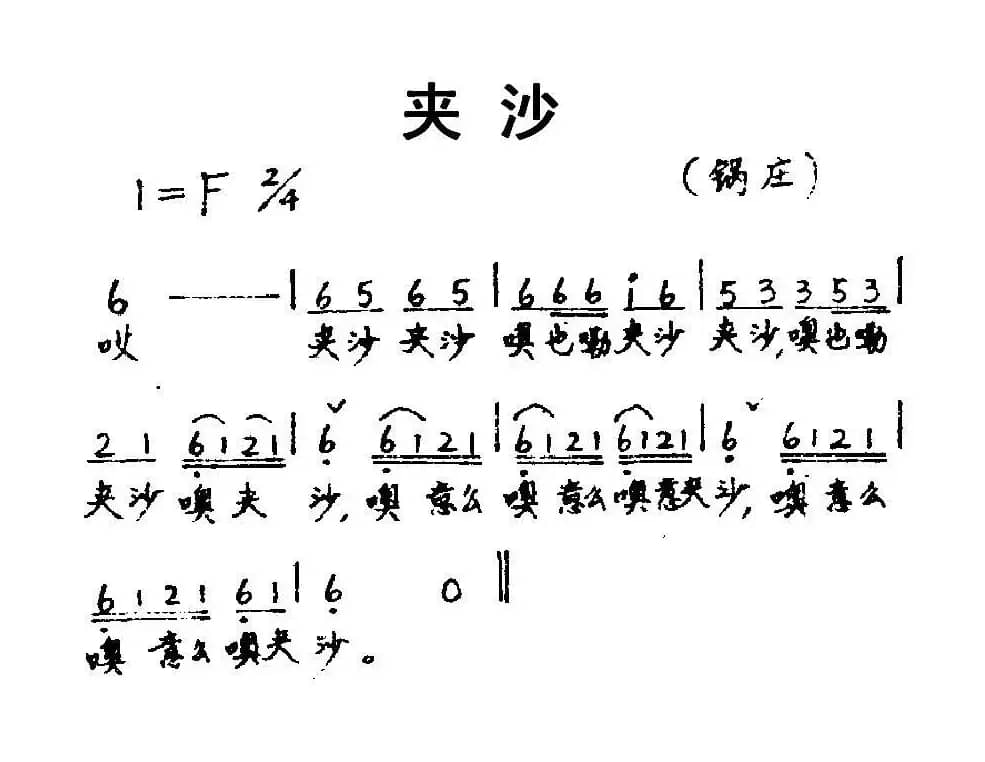 夹 沙
1=F 2/4 (锅庄)
6 —— | 6 5 6 5 | 6 6 6 i 6 | 5 3 3 5 3 |
哎 夹沙 夹沙 噢也嘞夹沙 夹沙,噢也嘞
2 1 6 1 2 1 | 6 ˇ 6 1 2 1 | 6 1 2 1 6 1 2 1 | 6 ˇ 6 1 2 1 |
夹沙噢夹 沙,噢 意么 噢 意么噢意夹沙,噢 意么
6 1 2 1 6 1 | 6 0 ‖
噢 意么噢夹沙。